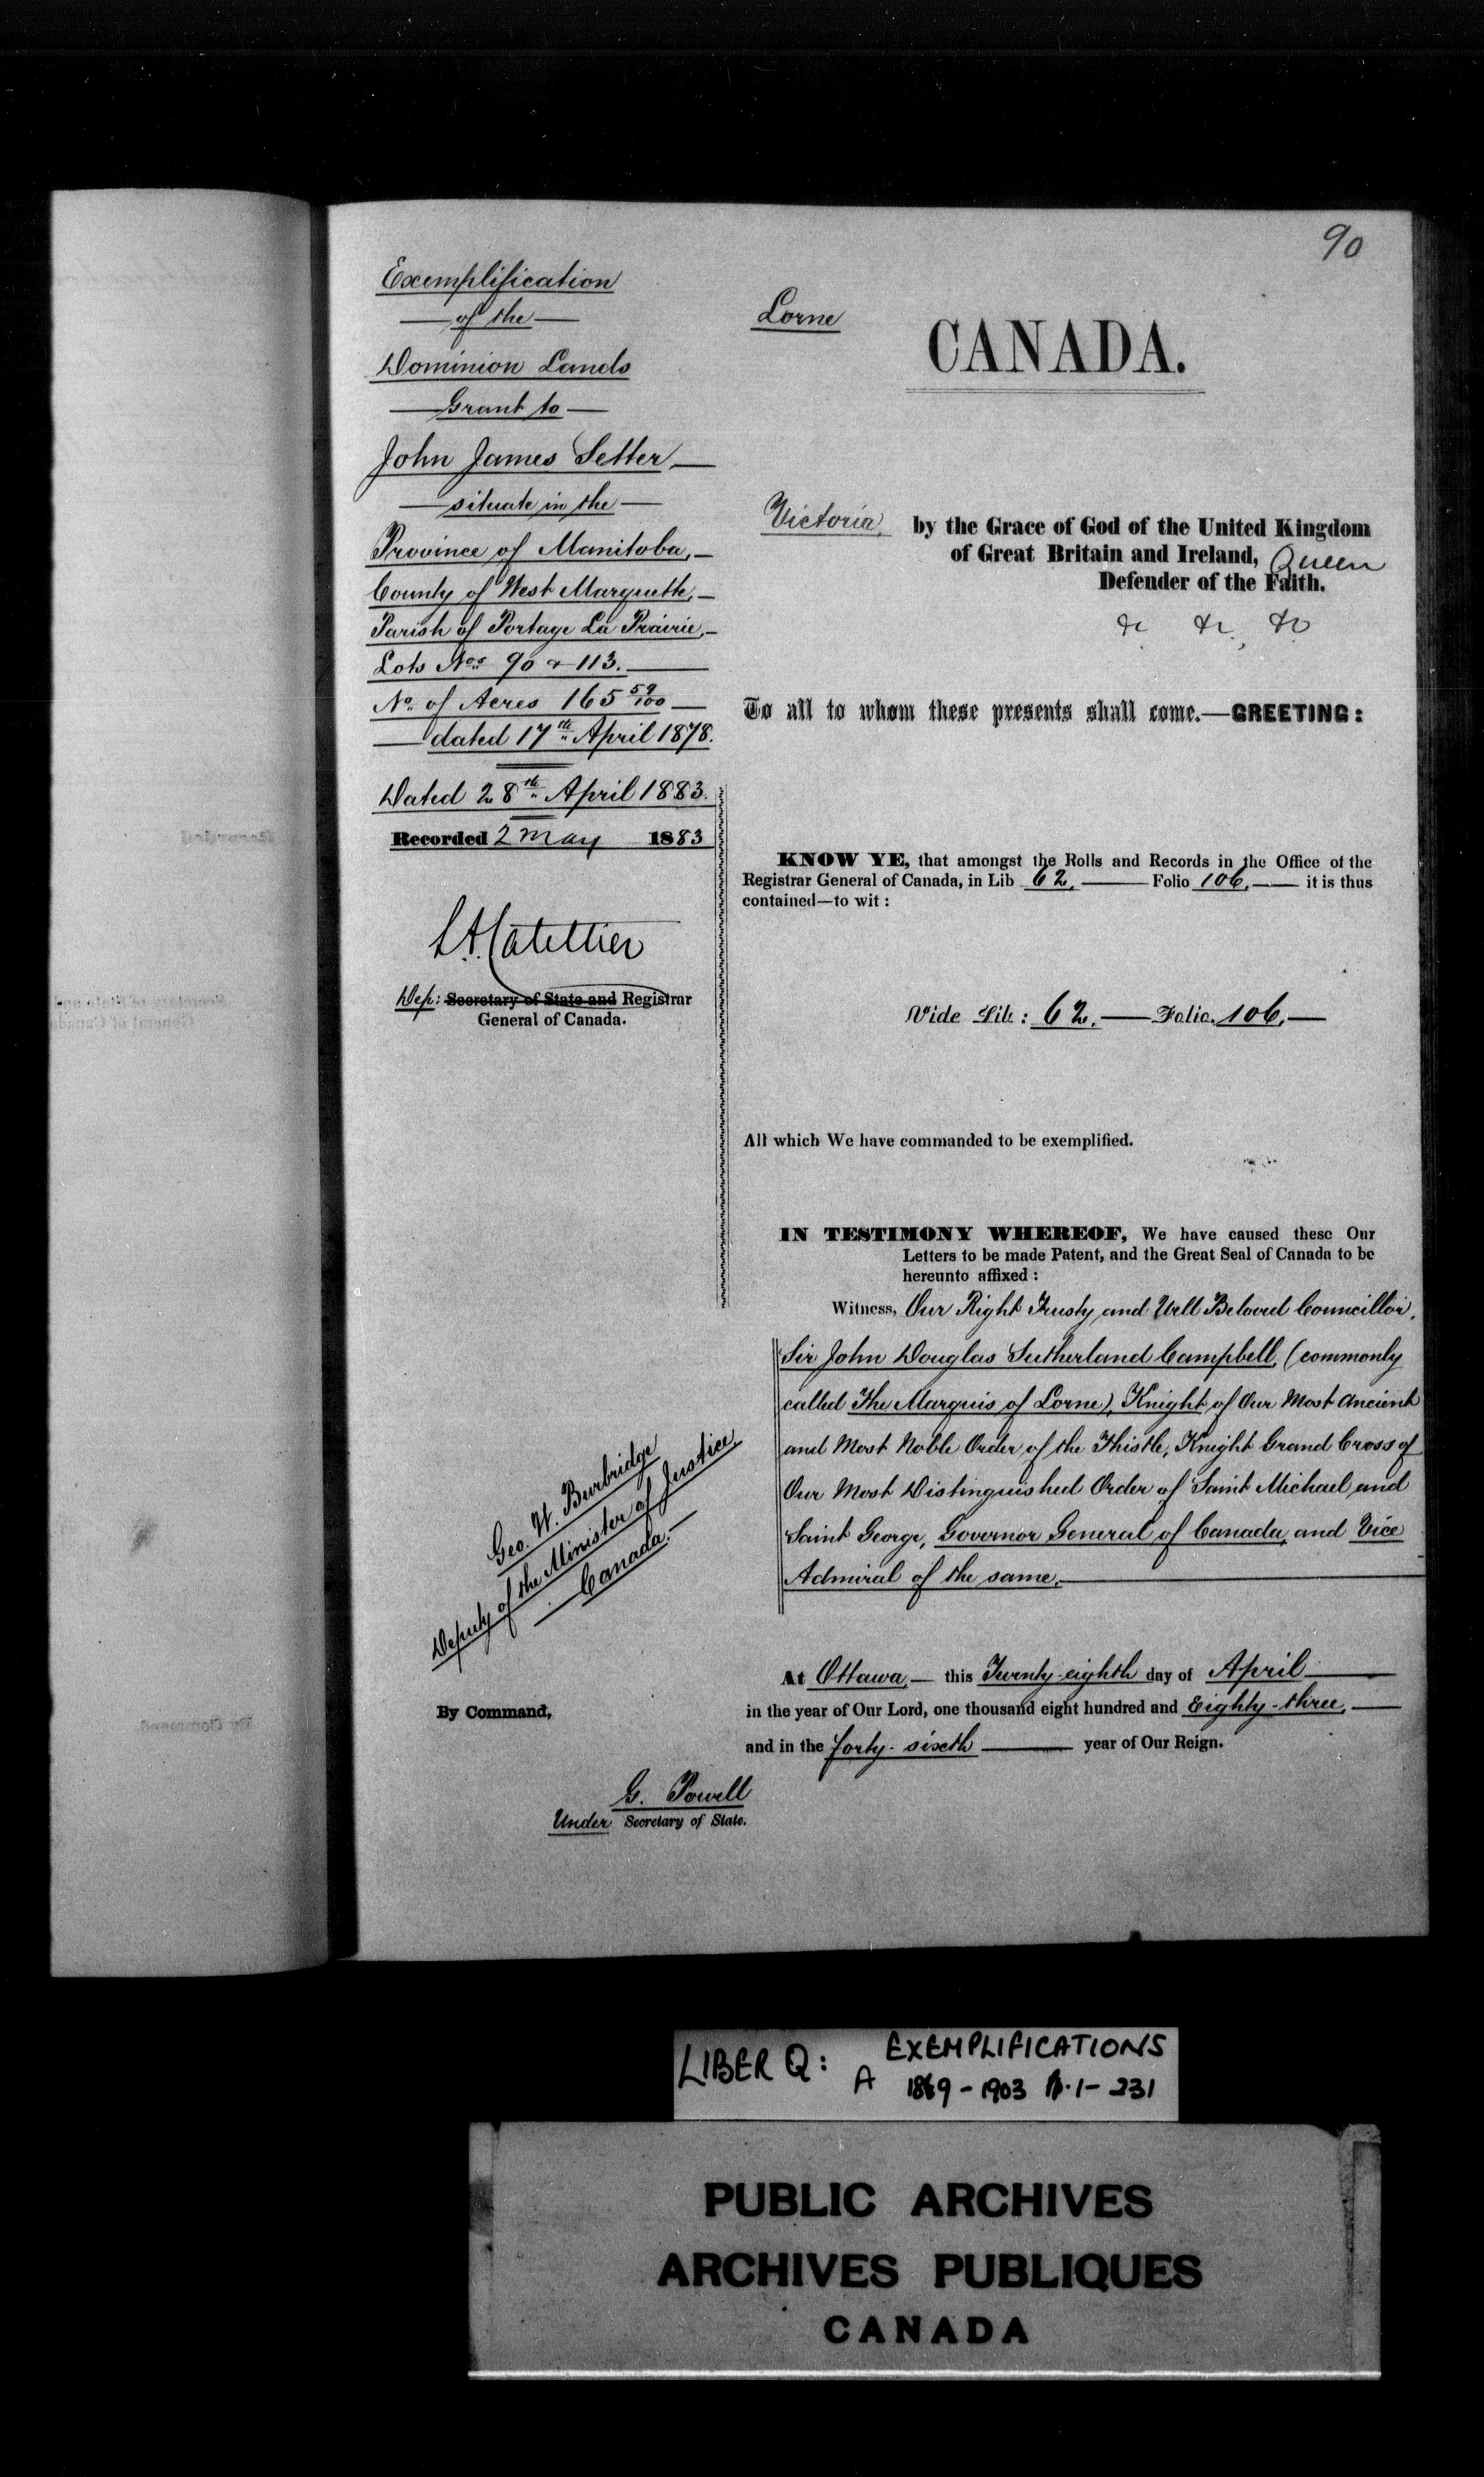 90
Exemplification
of the
Dominion Lands
Grant to
John James Setter
situate in the
Province of Manitoba,
County of West Marquette,
Parish of Portage La Prairie,
Lots Nos 90 & 113.
No. of Acres 165 59/100
dated 17th April 1878.
Dated 28th April 1883.
Recorded 2 May 1883
L.A. Catellier
Dep: Secretary of State and Registrar
General of Canada.
Geo. W. Burbridge
Deputy of the Minister of Justice
Canada.
By Command,
G. Powell
Under Secretary of State.
Lorne
CANADA.
Victoria, by the Grace of God of the United Kingdom
of Great Britain and Ireland, Queen
Defender of the Faith.
&c &c &c
To all to whom these presents shall come.—GREETING:
KNOW YE, that amongst the Rolls and Records in the Office of the
Registrar General of Canada, in Lib 62, Folio 106, it is thus
contained—to wit:
Vide Lib: 62, Folio. 106,
All which We have commanded to be exemplified.
IN TESTIMONY WHEREOF, We have caused these Our
Letters to be made Patent, and the Great Seal of Canada to be
hereunto affixed:
Witness, Our Right Trusty and Well Beloved Councillor,
Sir John Douglas Sutherland Campbell, (commonly
called The Marquis of Lorne), Knight of Our Most Ancient
and Most Noble Order of the Thistle, Knight Grand Cross of
Our Most Distinguished Order of Saint Michael and
Saint George, Governor General of Canada, and Vice
Admiral of the same.
At Ottawa, this Twenty-eighth day of April
in the year of Our Lord, one thousand eight hundred and Eighty-three,
and in the forty-sixth year of Our Reign.
LIBER Q: EXEMPLIFICATIONS
A 1869-1903 P.1-231
PUBLIC ARCHIVES
ARCHIVES PUBLIQUES
CANADA